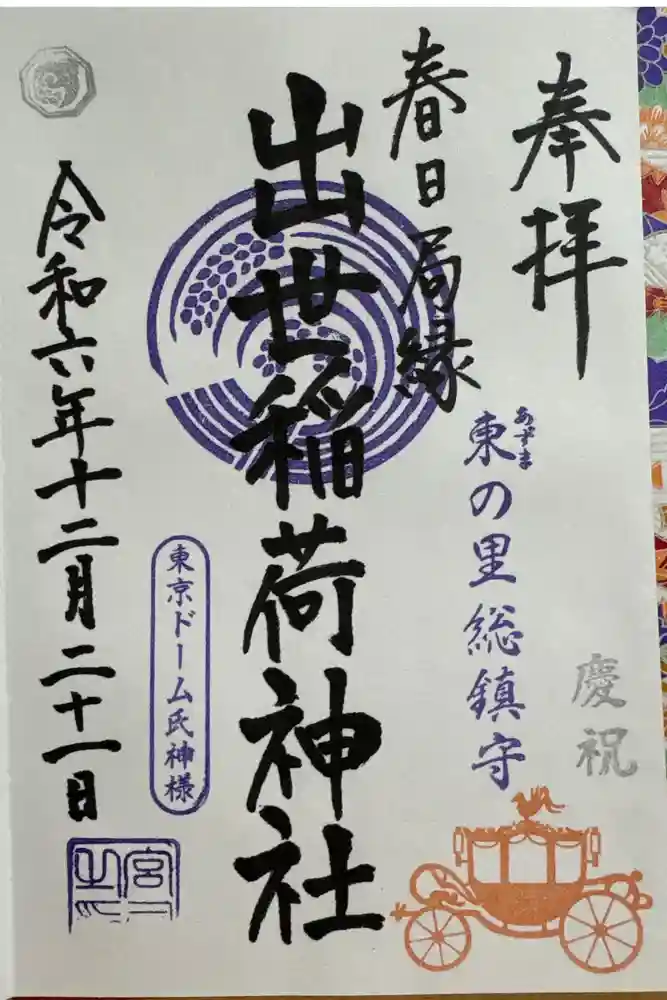 奉拝
慶祝
あずま
東の里総鎮守
春日局縁
出世稲荷神社
東京ドーム氏神様
令和六年十二月二十一日